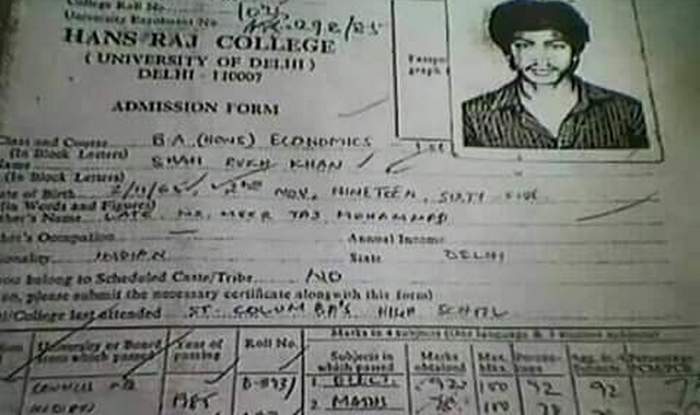 College Roll No.
University Enrolment No. 298/85
HANS RAJ COLLEGE
( UNIVERSITY OF DELHI )
DELHI - 110007
ADMISSION FORM
Class and Course B.A. (HONS) ECONOMICS
(In Block Letters)
Name SHAH RUKH KHAN
(In Block Letters)
ate of Birth 2/11/65 2ND NOV, NINETEEN, SIXTY FIVE
(in Words and Figures)
her's Name LATE MR. MEER TAJ MOHAMMAD
her's Occupation Annual Income
onality INDIAN State DELHI
you belong to Scheduled Caste/Tribe NO
so, please submit the necessary certificate alongwith this form)
ol/College last attended ST. COLUMBA'S HIGH SCHOOL
Marks in 4 subjects (One language &
University or Board from which passed
Year of passing
Roll No.
Subjects in which passed
Marks obtained
Max. Mks.
COUNCIL
INDIAN
1985
1. ELECT. 92 100 92 92
2. MATHS 78 100 78